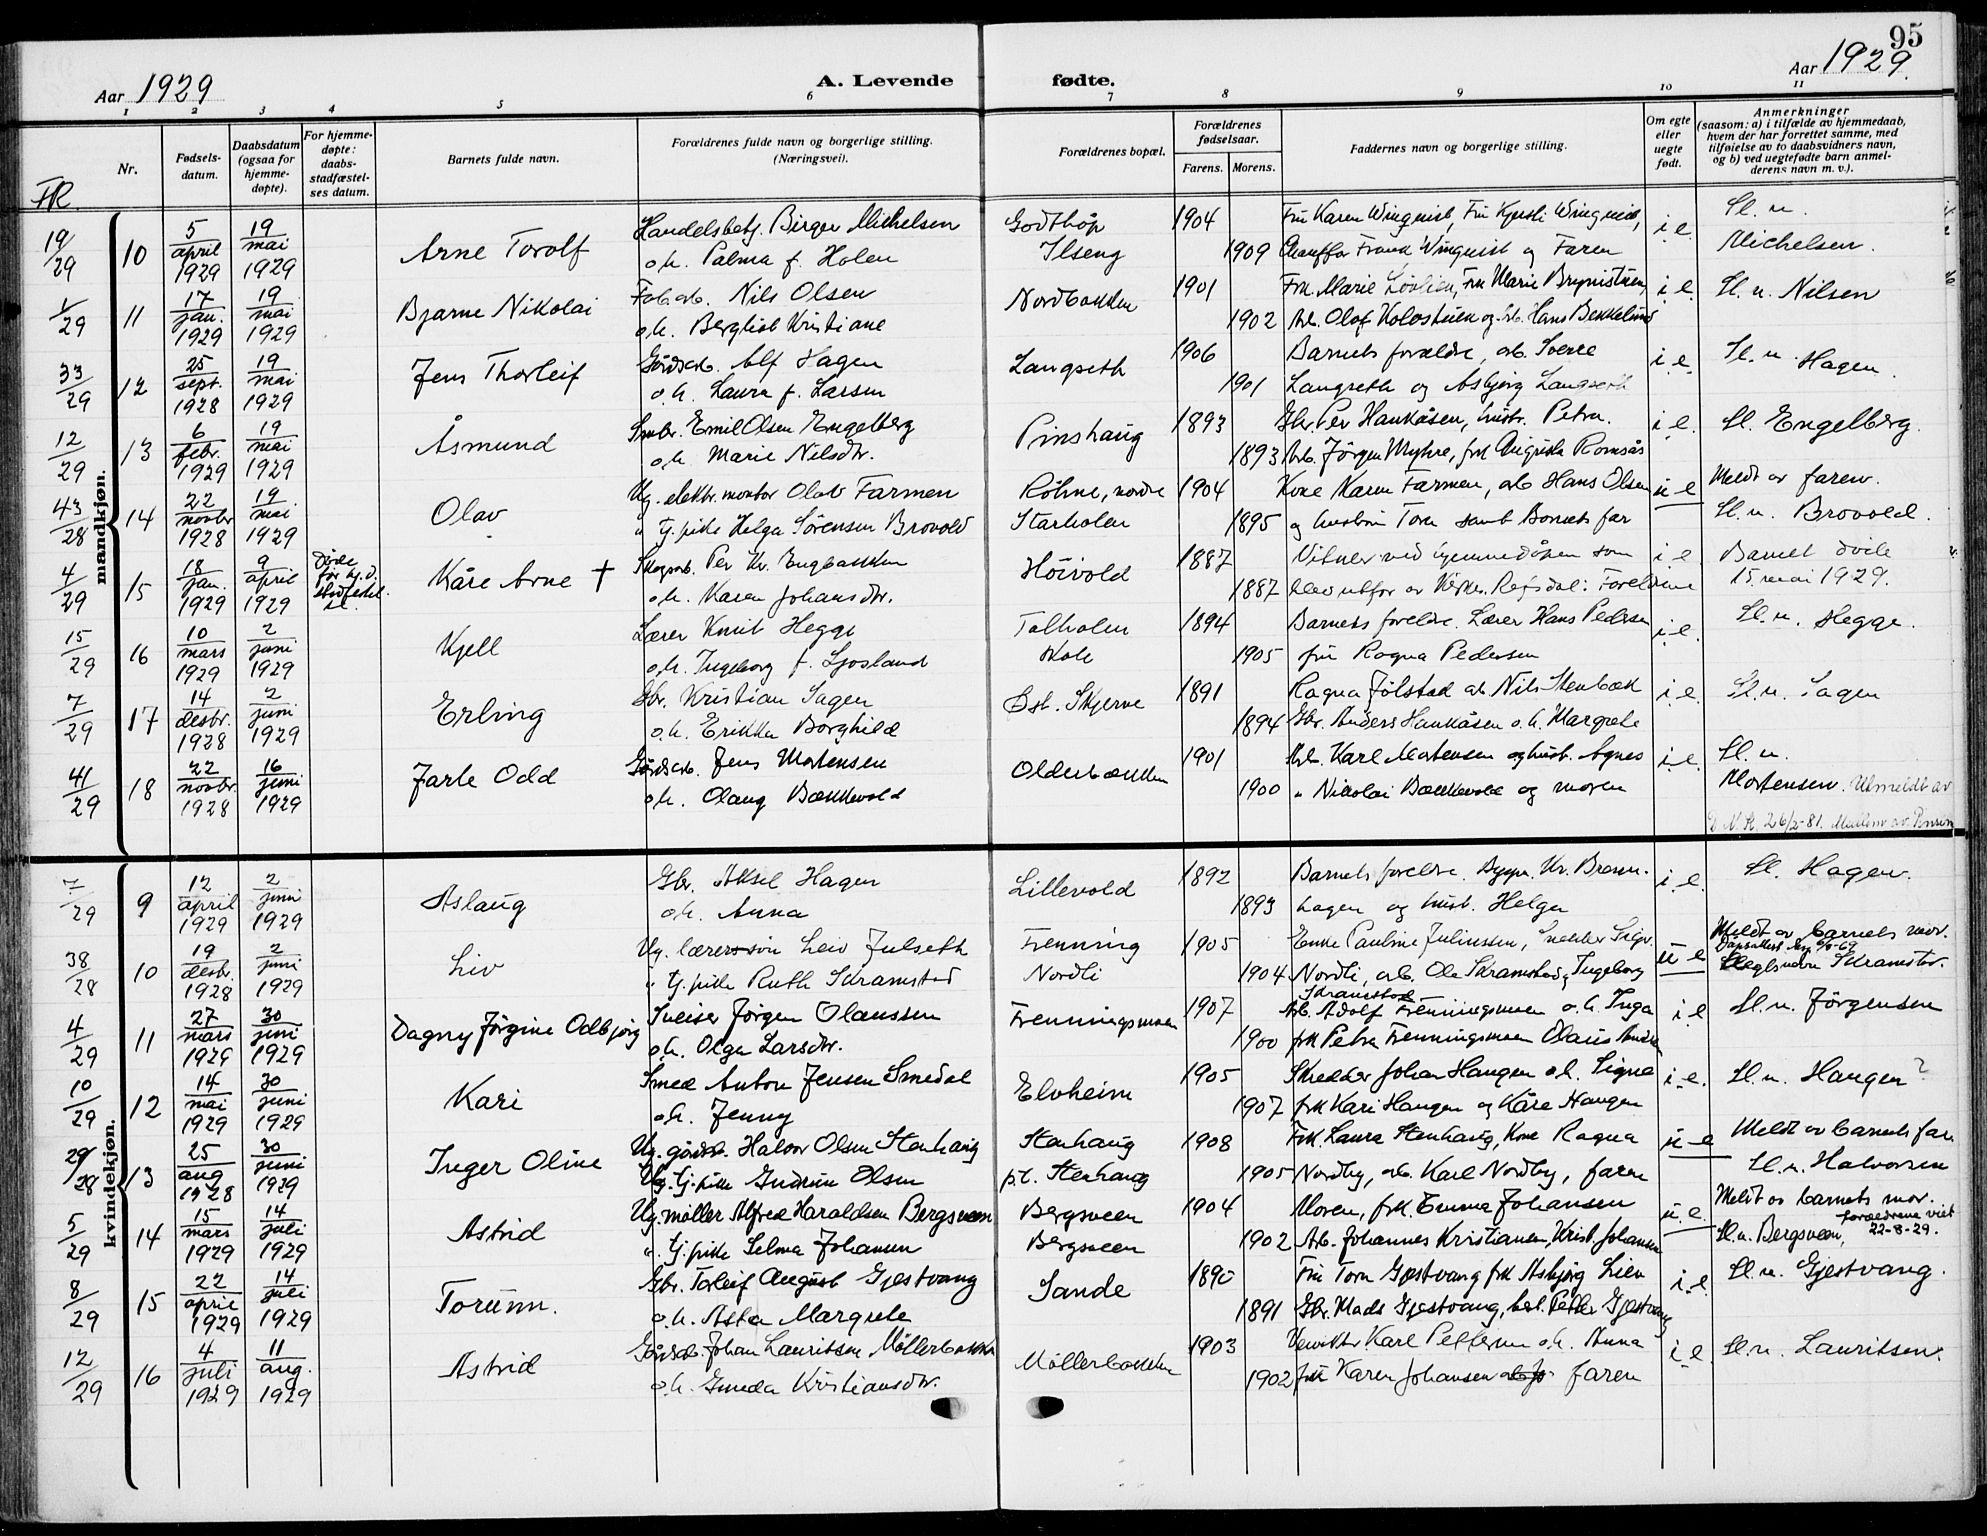 95
Aar 1929
A. Levende fødte.
Aar 1929.
1 2 3 4 5 6 7 8 9 10 11
Nr.
Fødsels-datum.
Daabsdatum (ogsaa for hjemme-døpte).
For hjemme-døpte: daabs-stadfæstel-ses datum.
Barnets fulde navn.
Forældrenes fulde navn og borgerlige stilling. (Næringsvei).
Forældrenes bopæl.
Forældrenes fødselsaar.
Farens. Morens.
Faddernes navn og borgerlige stilling.
Om egte eller uegte født.
Anmerkninger
(saasom: a) i tilfælde av hjemmedaab,
hvem der har forrettet samme, med
tilføielse av to daabsvidners navn,
og b) ved uegtefødte barn anmel-
derens navn m. v.).
FR.
mandkjøn.
19/29 10 5 april 1929 19 mai 1929 Arne Torolf Handelsbetj. Birger Michelsen Godthåp 1904 Fru Karen Winquist, Fru Kjersti Winquist, i.e. Sl. n.
o.h. Palma f. Holen Ilseng 1909 Chauffør Frank Winquist og Faren Michelsen.
1/29 11 17 jan. 1929 19 mai 1929 Bjarne Nikolai Fab.arb. Nils Olsen Nordbakken 1901 Frk. Marie Lövlien, Fru Marie i.e. Sl. n. Nilsen
o.h. Bergliot Kristiane 1902 Arb. Olof og arb. Hans Bekkelund
33/29 12 25 sept. 1928 19 mai 1929 Jens Thorleif Gårdsarb. Alf Hagen Langseth 1906 Barnets forældre, arb. Sverre i.e. Sl. n. Hagen.
o.h. Laura f. Larsen 1901 Langseth og Asbjørg Langseth
12/29 13 6 febr. 1929 19 mai 1929 Åsmund Smbr. Emil Olsen Engelberg Pinshaug 1893 Gbr. Per Haukåsen, hustr. Petra. i.e. Sl. Engelberg.
o.h. Marie Nilsdtr. 1893 Arb. Jörgen Myhre, frk Augusta Romsås
43/28 14 22 novbr 1928 19 mai 1929 Olav Ug. elektr. montør Olav Farmen Røhne, nordre 1904 Kone Karen Farmen, arb Hans Olsen u e Meldt av faren.
" tj. pike Helga Sörensen Brovold Starholen 1895 og hustru Tora samt Barnets far Sl. n. Brovold.
4/29 15 18 jan. 1929 9 april 1929 Døde før hj.d. stadfestel-se. Kåre Arne + Skogsarb. Per Kr. Engbakken Höivold 1887 Vitner ved hjemmedåpen som i.e. Barnet døde
o.h. Karen Johansdtr. 1887 blev utfør av Refsdal: Foreldrene 15 mai 1929.
15/29 16 10 mars 1929 2 juni 1929 Kjell Lærer Knut Hegge Tolholen 1894 Barnets foreldre. Lærer Hans Pedersen i.e. Sl. n. Hegge.
o.h. Ingeborg f. Ljosland skole 1905 fru Ragna Pedersen
7/29 17 14 desbr. 1928 2 juni 1929 Erling Gbr. Kristian Sagen Östb. Skjerve 1891 Ragna Jölstad arb Nils Stenbæk i.e. Sl. n. Sagen
o.h. Erikka Borghild 1894 Gbr. Anders Haukåsen o.h. Margrete
41/29 18 22 novbr. 1928 16 juni 1929 Jarle Odd Gårdsarb. Jens Mortensen Olderbakken 1901 Arb. Karl Mortensen og hust. Agnes i.e. Sl. n.
o.h. Olaug Bækkevold 1900 " Nikolai Bækkevold og moren Mortensen. Utmeldt av
D.N.K. 26/2-81. Medlem av
kvindekjøn.
7/29 9 12 april 1929 2 juni 1929 Aslaug Gbr. Aksel Hagen Lillevold 1892 Barnets foreldre. Kr. Bram- i.e. Sl. Hagen.
o.h. Anna 1893 hagen og hust. Helga
38/28 10 19 desbr. 1928 2 juni 1929 Liv Ug. lærerssøn Leiv Julseth Frenning 1905 Enke Pauline Juliussen, Snekker Sigv. u e Meldt av barnets mor.
" tj. pike Ruth Skramstad Nordli 1904 Nordli, arb. Ole Skramstad, Ingeborg Skramstad Slegtsnavn Skramstad.
4/29 11 27 mars 1929 30 juni 1929 Dagny Jørgine Odbjørg Sveiser Jørgen Olaussen Frenningsmoen 1907 Arb. Adolf Frenningsmoen o.h. Inga i e Sl. n. Jörgensen
o.h. Olga Larsdtr. 1900 frk Petra Frenningsmoen Olaus
10/29 12 14 mai 1929 30 juni 1929 Kari Smed Anton Jensen Smedal Elvheim 1905 Skredder Johan Haugen o.h. Signe i.e. Sl. n. Haugen?
o.h. Jenny 1907 frk Kari Haugen og Kåre Haugen
29/28 13 25 aug 1928 30 juni 1929 Inger Oline Ug. gårdsb. Halvor Olsen Stenhaug Stenhaug 1908 Frk Laura Stenhaug, Kone Ragna u-e Meldt av barnets far.
Ug. tj. pike Gudrun Olsen p.t. Stenhaug 1905 Nordby, arb. Karl Nordby, faren Sl. n. Halvorsen
5/29 14 15 mars 1929 14 juli 1929 Astrid Ug. møller Alfred Haraldsen Bergsveen Bergsveen 1904 Moren, frk. Emma Johansen u.e. Meldt av barnets mor.
" tj. pike Selma Johansen Bergsveen 1902 Arb. Johannes Kristiansen, Krist. Johansen Sl. n. Bergsveen, forældrene viet 22-8-29.
8/29 15 22 april 1929 14 juli 1929 Torunn. Gbr. Torleif August Gjestvang Sande 1890 Fru Tora Gjestvang frk Asbjørg Lien i.e. Sl. n. Gjestvang.
o.h. Asta Margrete 1891 Gbr. Mads Gjestvang, Petter Gjestvang
12/29 16 4 juli 1929 11 aug. 1929 Astrid Gårdsarb. Johan Lauritsen Möllerbakken Möllerbakken 1903 Karl Pettersen o.h. Anna i.e. Sl. n. Lauritsen.
o.h. Gmeda Kristiansdtr. 1902 frk Karen Johansen faren